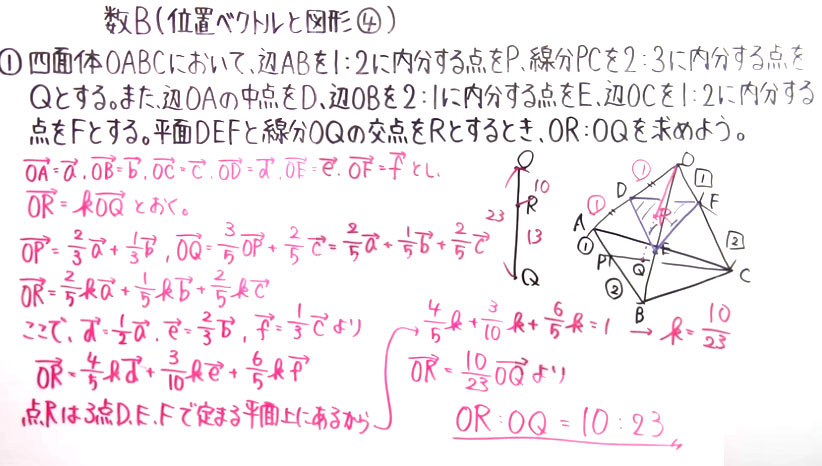 数B(位置ベクトルと図形④)
① 四面体OABCにおいて、辺ABを1:2に内分する点をP、線分PCを2:3に内分する点を
Qとする。また、辺OAの中点をD、辺OBを2:1に内分する点をE、辺OCを1:2に内分する
点をFとする。平面DEFと線分OQの交点をRとするとき、OR:OQを求めよう。
→OA=→a, →OB=→b, →OC=→c, →OD=→d, →OE=→e, →OF=→fとし、
→OR=k→OQとおく。
→OP=2/3→a+1/3→b, →OQ=3/5→OP+2/5→c=2/5→a+1/5→b+2/5→c
→OR=2/5k→a+1/5k→b+2/5k→c
ここで、→d=1/2→a, →e=2/3→b, →f=1/3→cより
→OR=4/5k→d+3/10k→e+6/5k→f
点Rは3点D、E、Fで定まる平面上にあるから
4/5k+3/10k+6/5k=1 → k=10/23
→OR=10/23→OQより
OR:OQ=10:23
O
10
R
23
13
Q
O
①
1
D
F
R
①
A
①
E
2
P
Q
C
②
B